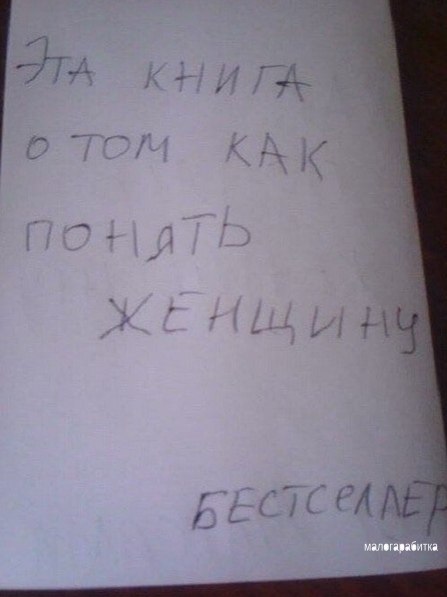 ЭТА КНИГА
О ТОМ КАК
ПОНЯТЬ
ЖЕНЩИНУ
БЕСТСЕЛЛЕР
малогарабитка